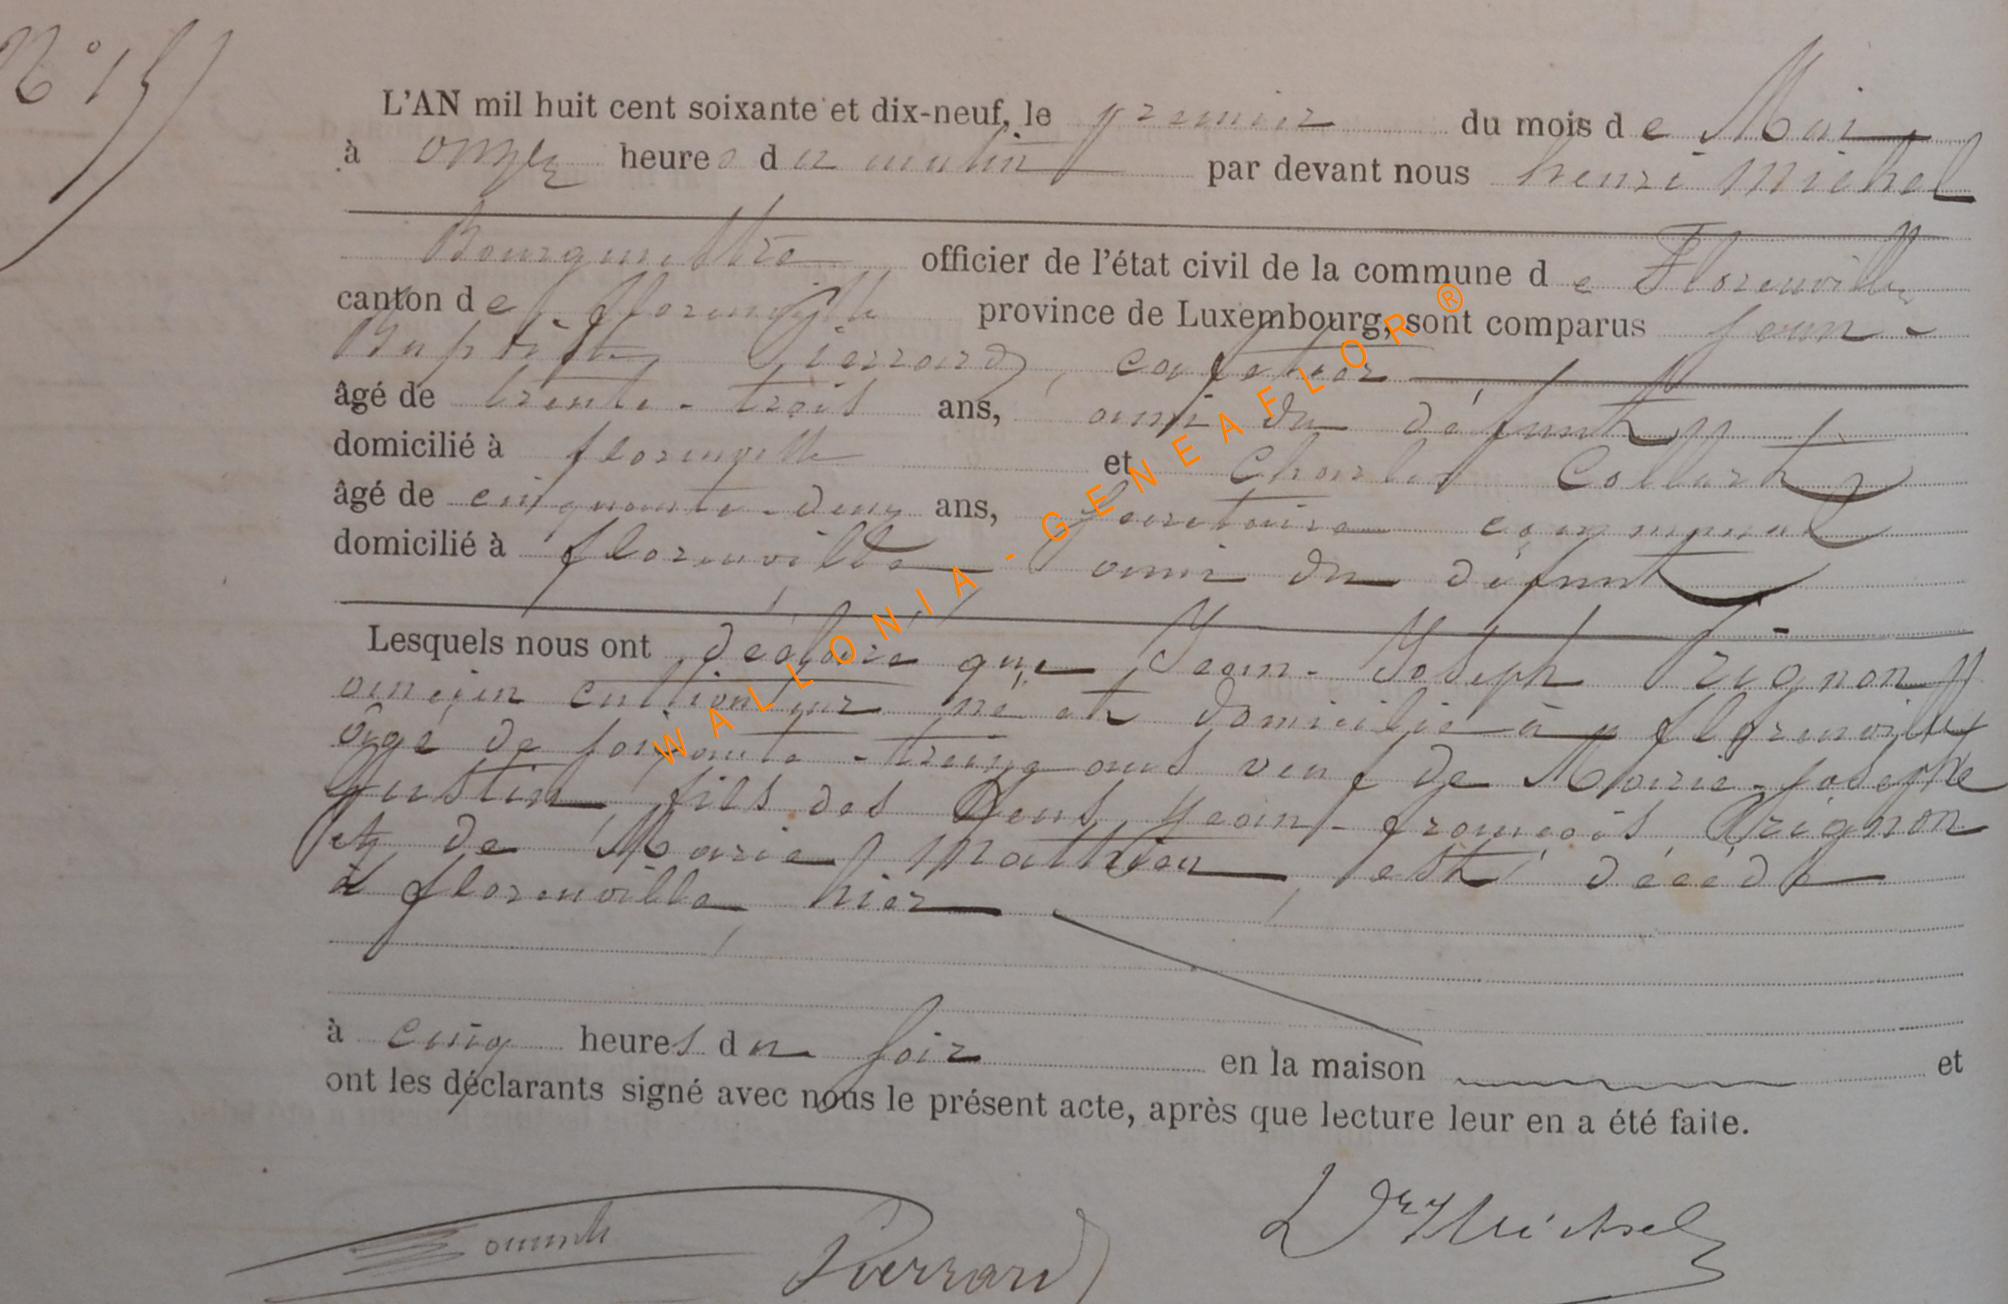 N° 15
L'AN mil huit cent soixante et dix-neuf, le premier du mois de Mai
à onze heures du matin par devant nous henri Michel
Bourgmestre officier de l'état civil de la commune de Florenville
canton de florenville province de Luxembourg, sont comparus jean-
Baptiste Pierrard, cafetier
âgé de trente-trois ans, ami du défunt
domicilié à florenville et Charles Collart
âgé de cinquante-deux ans, secretaire communal
domicilié à florenville ami du défunt
Lesquels nous ont déclaré que Jean-Joseph Trignon
ancien cultivateur né et domicilié à florenville
âgé de soixante-treize ans veuf de Marie-josephe
Gustin fils des Jean-françois Trignon
et de Marie Mathieu est décédé
à florenville hier
à cinq heures du soir en la maison et
ont les déclarants signé avec nous le présent acte, après que lecture leur en a été faite.
Pierrard Dr Michel
WALLONIA-GENEAFLOR®